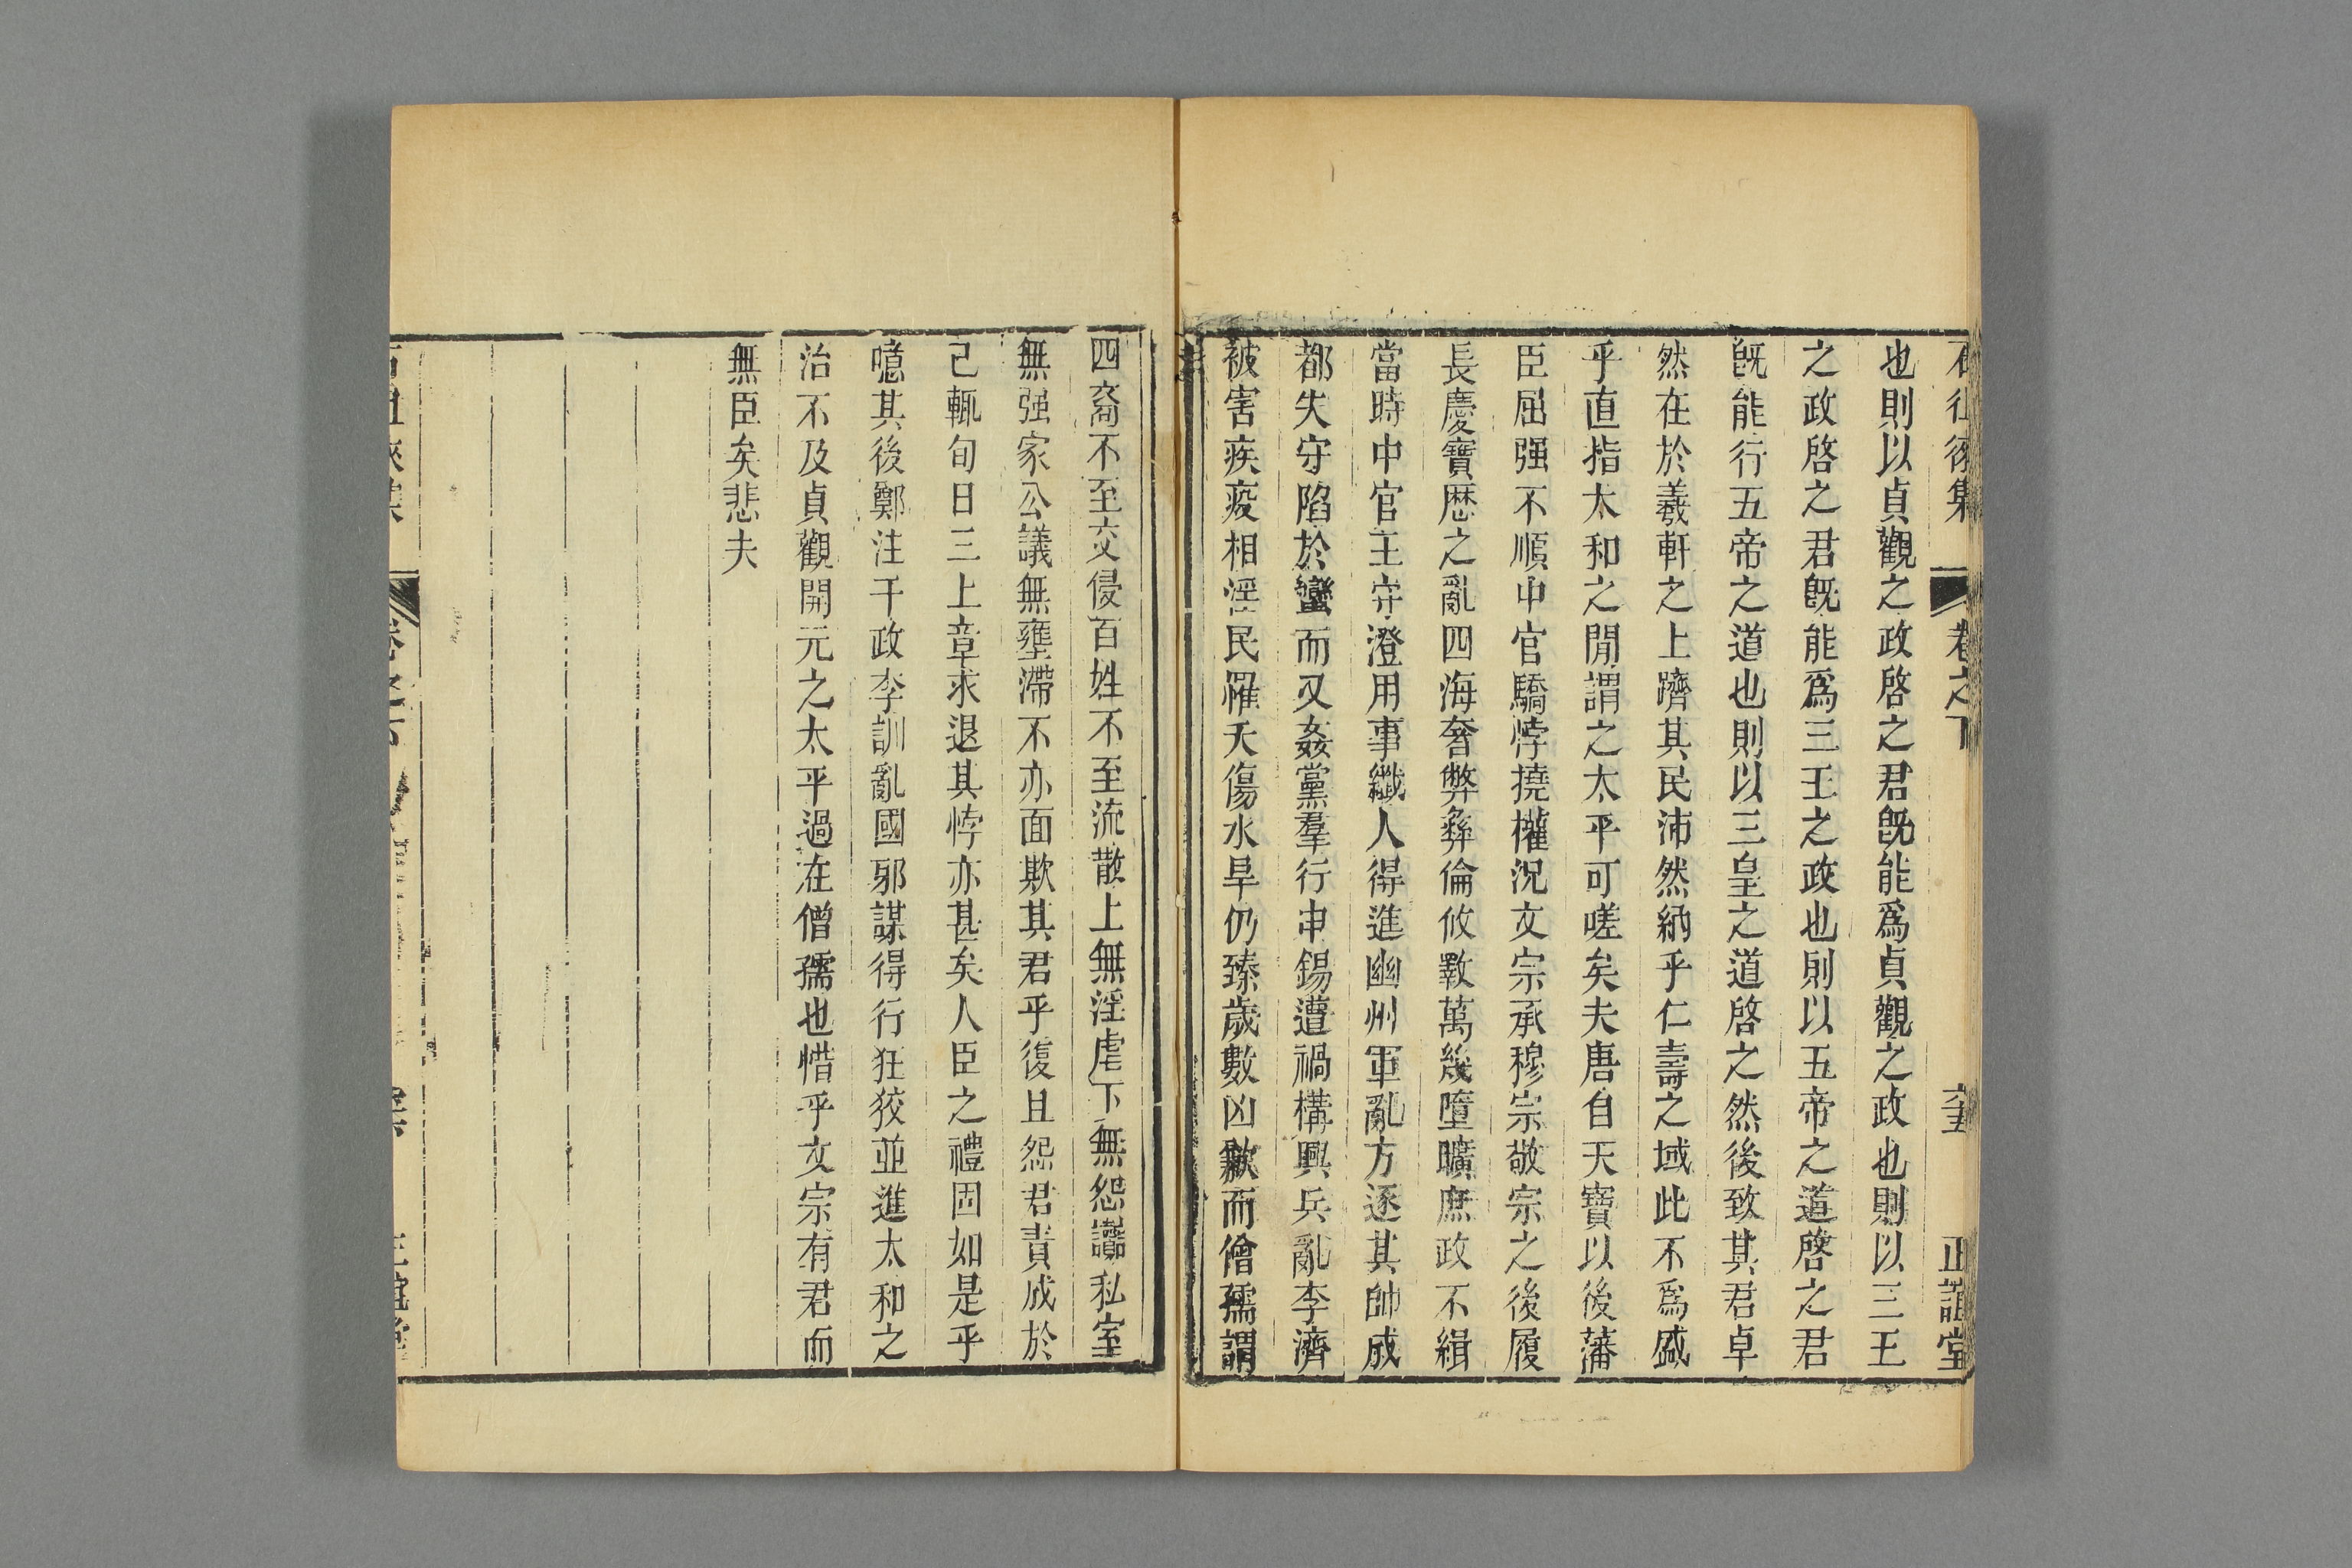 石徂徠集
卷之下
正誼堂
也則以貞觀之政啓之君旣能爲貞觀之政也則以三王
之政啓之君旣能爲三王之政也則以五帝之道啓之君
旣能行五帝之道也則以三皇之道啓之然後致其君卓
然在於羲軒之上躋其民沛然納乎仁壽之域此不爲盛
乎直指太和之閒謂之太平可嗟矣夫唐自天寶以後藩
臣屈强不順中官驕悖撓權況文宗承穆宗敬宗之後履
長慶寶歷之亂四海奢弊彝倫攸斁萬幾墮曠庶政不緝
當時中官王守澄用事纖人得進幽州軍亂方逐其帥成
都失守陷於蠻而又姦黨羣行申錫遭禍構興兵亂李濟
被害疾疫相淫民罹夭傷水旱仍臻歲數凶歉而僧孺謂
四裔不至交侵百姓不至流散上無淫虐下無怨讟私室
無强家公議無壅滯不亦面欺其君乎復且怨君責成於
己輒旬日三上章求退其悖亦甚矣人臣之禮固如是乎
噫其後鄭注干政李訓亂國邪謀得行狂狡並進太和之
治不及貞觀開元之太平過在僧孺也惜乎文宗有君而
無臣矣悲夫